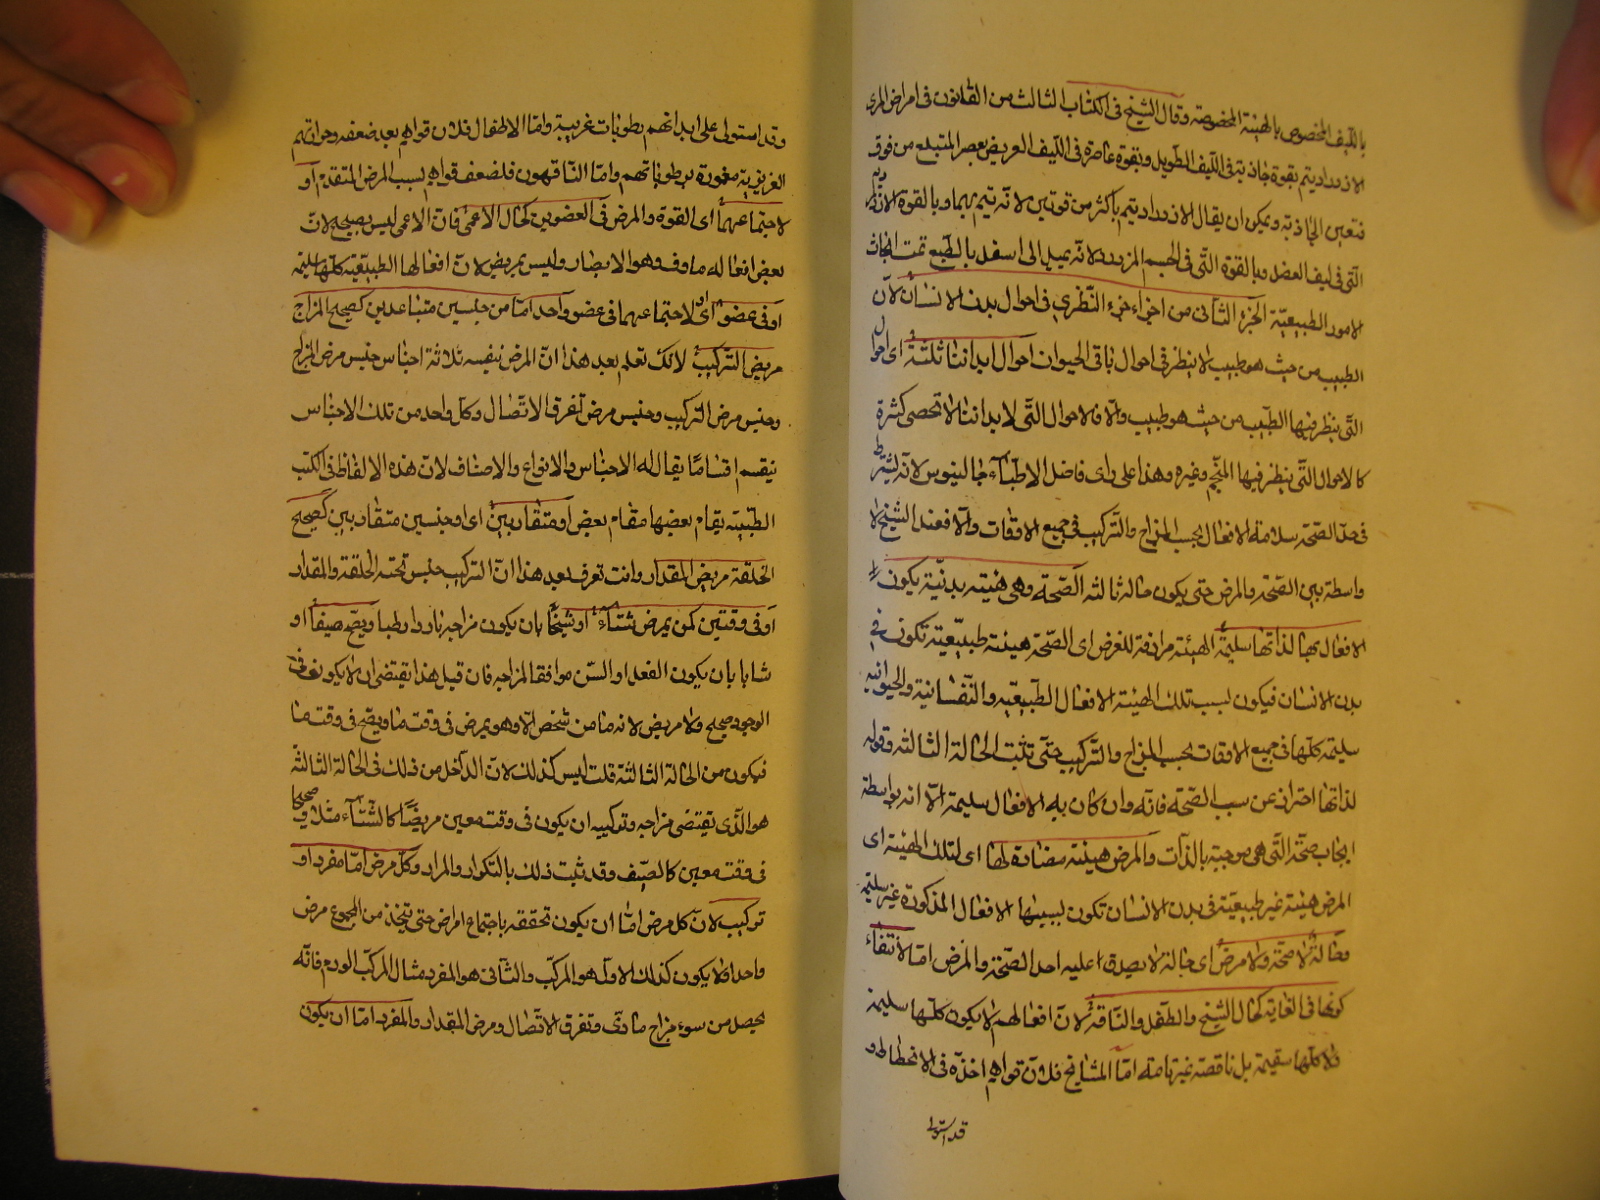 بالليف المخصوص بالهيئة المخصوصة وقال الشيخ فى الكتاب الثالث من القانون فى امراض المرى
الازدراد يتم بقوة جاذبة فى الليف الطويل وبقوة عاصرة فى الليف العريض بعصر المبتلع من فوق
فتعين الجاذبة ويمكن ان يقال الازدراد يتم باكثر من قوتين لانه يتم بهما وبالقوة الارادية
التى فى ليف العضل وبالقوة التى فى الجسم المزدرد لانه يميل الى اسفل بالطبع تمت ابحاث
الامور الطبيعية الجزء الثانى من اجزاء جزء النظرى فى احوال بدن الانسان لان
الطبيب من حيث هو طبيب لا ينظر فى احوال باقى الحيوان احوال ابداننا ثلثة اى احوال
التى ينظر فيها الطبيب من حيث هو طبيب والا فالاحوال التى لابداننا لا تحصى كثرة
كالاحوال التى ينظر فيها المنجم وغيره وهذا على راى فاضل الاطباء جالينوس لانه يشترط
فى حد الصحة سلامة الافعال بحسب المزاج والتركيب فى جميع الاوقات والا فعند الشيخ لا
واسطة بين الصحة والمرض حتى يكون حالة ثالثة الصحة وهى هيئة بدنية يكون
الافعال بها لذاتها سليمة الهيئة مرادفة للعرض اى الصحة هيئة طبيعية تكون فى
بدن الانسان فيكون بسبب تلك الهيئة الافعال الطبيعية والنفسانية والحيوانية
سليمة كلها فى جميع الاوقات بحسب المزاج والتركيب حتى تثبت الحالة الثالثة وقوله
لذاتها احتراز عن سبب الصحة فانه وان كان به الافعال سليمة الا انه بواسطة
ايجاب صحة التى هى موجبة بالذات والمرض هيئة مضادة لها اى لتلك الهيئة اى
المرض هيئة غير طبيعية فى بدن الانسان تكون بسببها الافعال المذكورة غير سليمة
وحالة لا صحة ولا مرض اى حالة لا يصدق عليه احد الصحة والمرض اما لانتفاء
كونها فى الغاية كحال الشيخ والطفل والناقة لان افعالهم لا يكون كلها سليمة
ولا كلها سقيمة بل ناقصة غير تامة اما المشايخ فلان قواهم اخذه فى الانحطاط و
قد استولى
وقد استولى على ابدانهم رطوبات غريبة واما الاطفال فلان قواهم بعد ضعفه وحرارتهم
الغريزية مغمورة برطوباتهم واما الناقهون فلضعف قواهم بسبب المرض المتقدم او
لاجتماعهما اى القوة والمرض فى العضوين كحال الاعمى فان الاعمى ليس بصحيح لان
بعض افعاله ماوف وهو الابصار وليس بمريض لان افعالها الطبيعية كلها سليمة
او فى عضو اى او لاجتماعهما فى عضو واحد اما من جنسين متباعدين كصحيح المزاج
مريض التركيب لانك تعلم بعد هذا ان المرض نفسه ثلاثة اجناس جنس مرض المزاج
وجنس مرض التركيب وجنس مرض تفرق الاتصال وكل واحد من تلك الاجناس
ينقسم اقسامًا يقال له الاجناس والانواع والاصناف لان هذه الالفاظ فى الكتب
الطبية يقام بعضها مقام بعض او متقاربين اى او جنسين متقاربين كصحيح
الخلقة مريض المقدار وانت تعرف بعد هذا ان التركيب جنس تحته الخلقة والمقدار
او فى وقتين كمن يمرض شتاء او شيخًا بان يكون مزاجه باردا رطبا ويصح صيفا او
شابا بان يكون الفعل او السن موافقا لمزاجه فان قيل هذا يقتضى ان لا يكون فى
الوجود صحيح ولا مريض لانه ما من شخص الا وهو يمرض فى وقت ما ويصح فى وقت ما
فيكون من الحالة الثالثة قلت ليس كذلك لان الداخل من ذلك فى الحالة الثالثة
هو الذى يقتضى مزاجه وتركيبه ان يكون فى وقت معين مريضًا كالشتاء مثلا وصحيحا
فى وقت معين كالصيف وقد ثبت ذلك بالتكرار والمرار وكل مرض اما مفرد او
تركيب لان كل مرض اما ان يكون تحققه باجتماع امراض حتى يتخذ من المجموع مرض
واحد او لا يكون كذلك الاول هو المركب والثانى هو المفرد مثال المركب الورم فانه
يحصل من سوء مزاج مادى وتفرق الاتصال ومرض المقدار والمفرد اما ان يكون